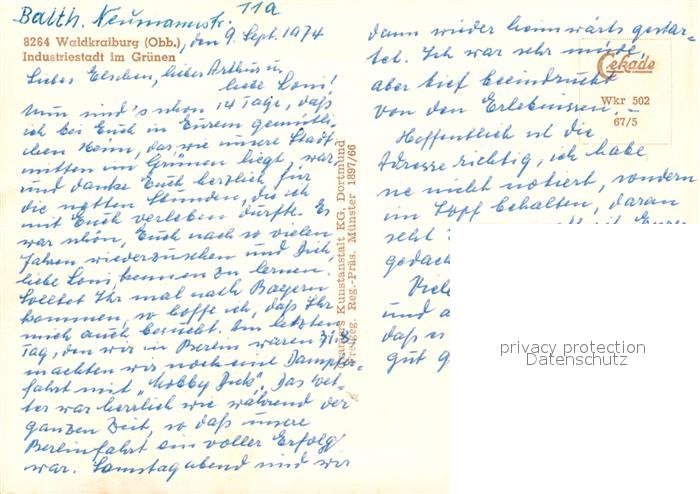 Balth. Neumannstr. 11a
8264 Waldkraiburg (Obb.), den 9. Sept. 1974
Industriestadt im Grünen
Liebes Elschen, lieber Arthur u.
liebe Loni!
Nun sind's schon 14 Tage, daß
ich bei Euch in Eurem gemütli-
chen Heim, das wie unsere Stadt
mitten im Grünen liegt, war
und danke Euch herzlich für
die netten Stunden, die ich
mit Euch verleben durfte. Es
war schön, Euch nach so vielen
Jahren wiederzusehen und Dich,
liebe Loni, kennen zu lernen.
Solltet Ihr mal nach Bayern
kommen, so hoffe ich, daß Ihr
mich auch besucht. Am letzten
Tag, den wir in Berlin waren 31.8.
machten wir noch eine Dampfer-
fahrt mit „Mobby Dick". Das Wet-
ter war herrlich wie während der
ganzen Zeit, so daß unsere
Berlinfahrt ein voller Erfolg
war. Samstag abend sind wir
dann wieder heimwärts gestar-
tet. Ich war sehr müde
aber tief beeindruckt
von den Erlebnissen. –
Hoffentlich ist die
Adresse richtig, ich habe
sie nicht notiert, sondern
im Kopf behalten, daran
seht
gedach
Viele
und a
daß es
gut g
Cekade
Wkr 502
67/5
Kunstanstalt KG, Dortmund
Freigeg. Reg.-Präs. Münster 1897/66
privacy protection
Datenschutz